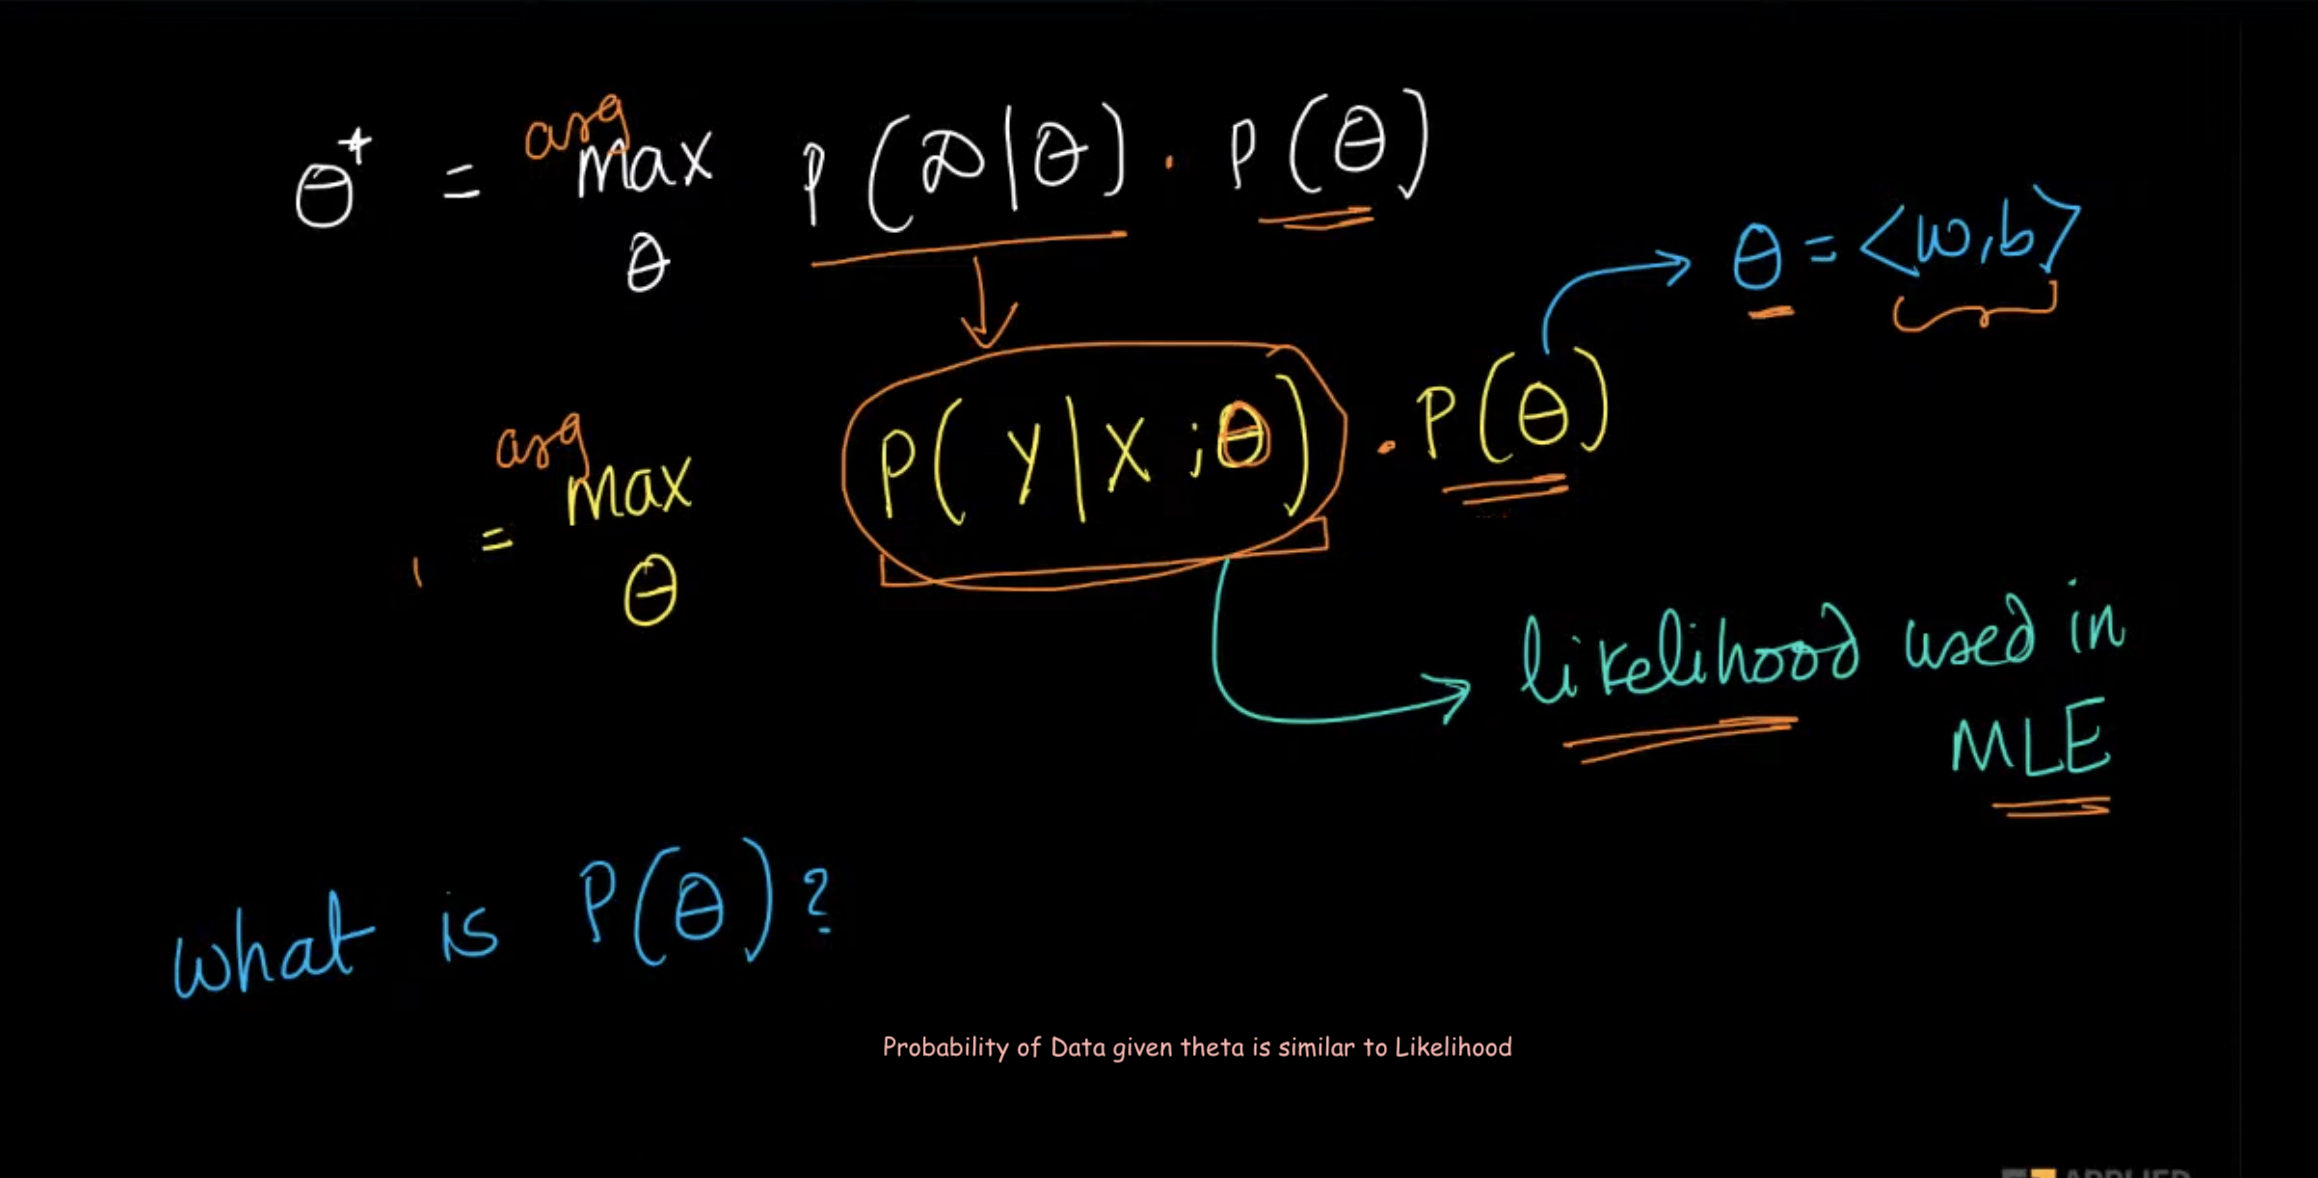 θ* = arg max θ P(D|θ) · P(θ)
θ = <w,b>
= arg max θ P(Y|X;θ) · P(θ)
likelihood used in
MLE
what is P(θ)?
Probability of Data given theta is similar to Likelihood
APPLIED